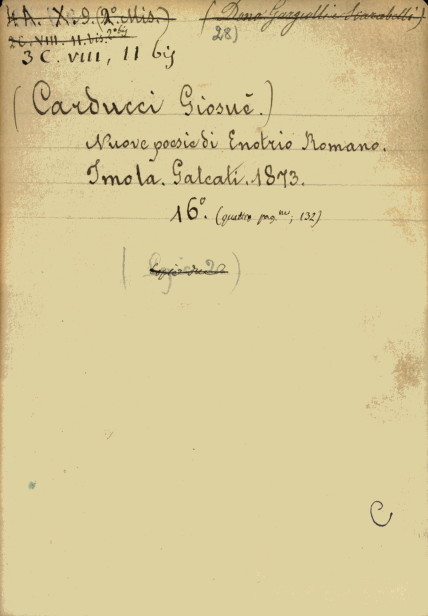 4 A. X. 9. (2º. Mis.) (Dono Gargiolli e Scarabelli)
2 C. VIII. 11. bis. 2º bis 28)
3 C. VIII, 11 bis
(Carducci Giosuè.)
Nuove poesie di Enotrio Romano.
Imola. Galeati. 1873.
16º. (quattro pag.ne; 132)
C